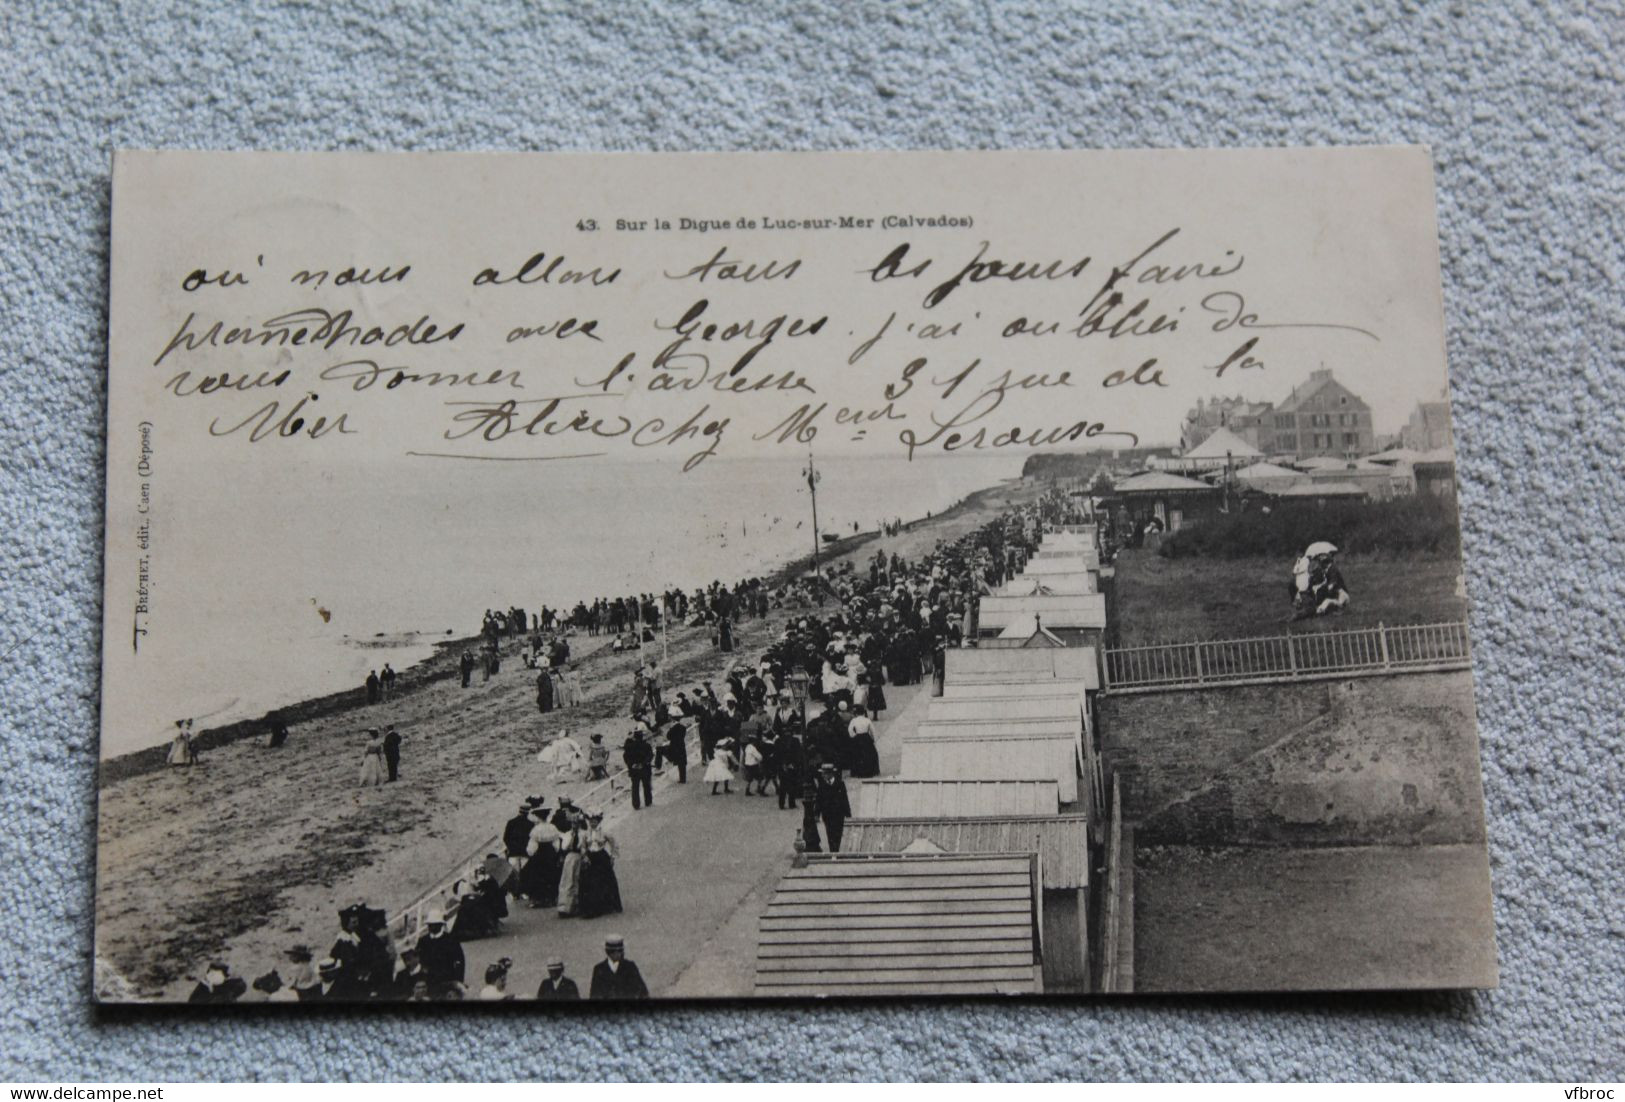 43. Sur la Digue de Luc-sur-Mer (Calvados)
où nous allons tous les jours faire
promenades avec Georges. j'ai oublié de
vous donner l'adresse 31 rue de la
Mer chez Meur Lerouse
J. BRÉCHET, édit., Caen (Déposé)
delcampe.net
vfbroc